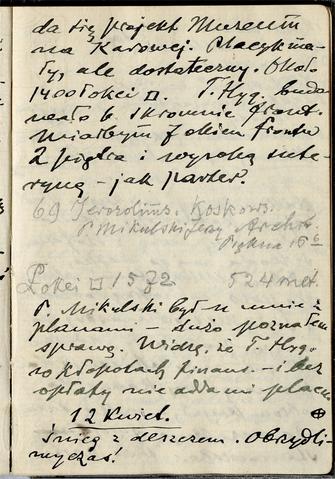 da się projekt Muzeum
na Karowej. Placyk ma-
ły, ale dostateczny. Około
1400 łokci □. T. Hyg. budo-
wało b. skromnie front.
Miałbym 7 okien frontu
2 piętra i wysoką sute-
rynę – jak parter.
69 Jerozolims. Koskows.
P. Mikulski Jerzy Archit.
Piękna 16 b
Łokci □ 1572 524 met.
P. Mikulski był u mnie z
planami – dużo poznałem
sprawę. Widzę, że T. Hyg.
w kłopotach finans. – i bez
opłaty nie oddami placu
12 Kwiet.
Śnieg z deszczem. Obrzydli-
wy czas!